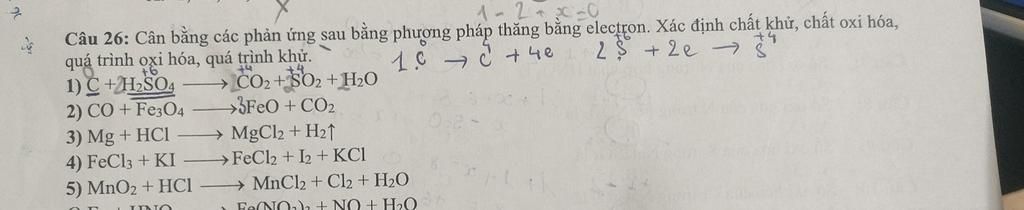 1 - 2 + x = 0
Câu 26: Cân bằng các phản ứng sau bằng phương pháp thăng bằng electron. Xác định chất khử, chất oxi hóa,
quá trình oxi hóa, quá trình khử. 1 C⁰ → C⁴ + 4e 2 S⁺⁶ + 2e → S⁺⁴
0 +6 +4 +4
1) C + 2H₂SO₄ ⟶ 1CO₂ + 2SO₂ + 1H₂O
2) CO + Fe₃O₄ ⟶ 3FeO + CO₂
3) Mg + HCl ⟶ MgCl₂ + H₂↑
4) FeCl₃ + KI ⟶ FeCl₂ + I₂ + KCl
5) MnO₂ + HCl ⟶ MnCl₂ + Cl₂ + H₂O
Fe(NO₃)₃ + NO + H₂O